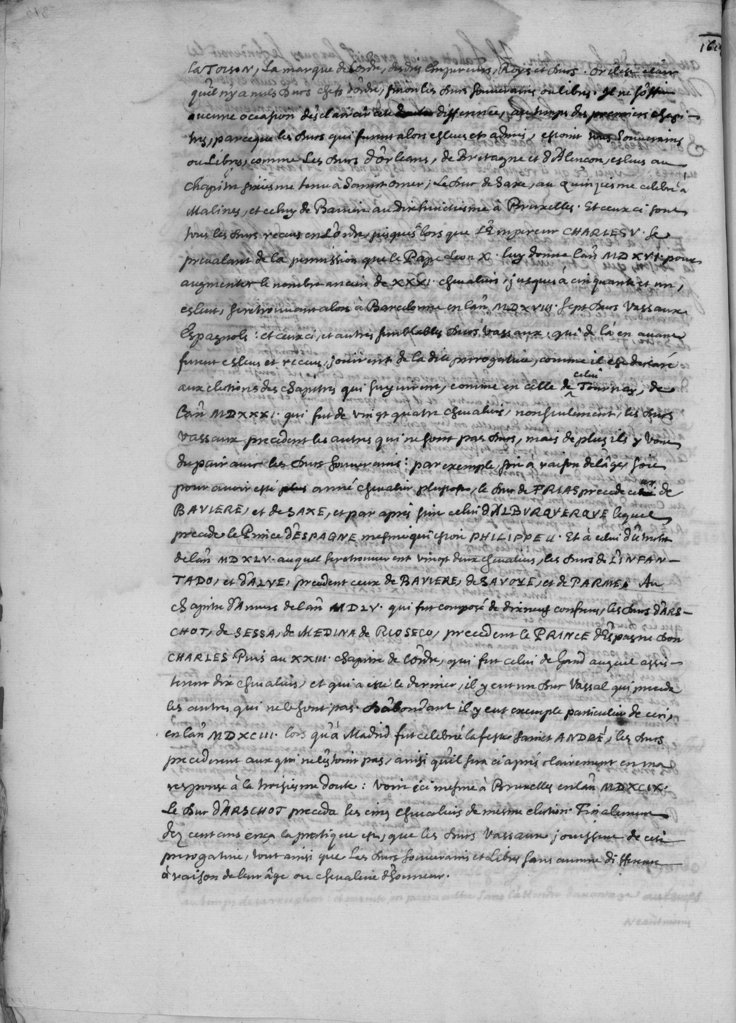 la TOISON, la marque de l'ordre, des dits Empereurs, Roys et Ducs. Or il est clair
qu'il n'y a nuls Ducs chefs d'ordre, sinon les Ducs souverains ou libres. Il ne s'offrit
aucune occasion d'esclarcir cet difference, au temps des premiers chapi-
tres, parceque les Ducs qui furent alors esleus et admis, estoient souverains
ou Libres, comme Les Ducs d'Orleans, de Bretagne et d'Alencon, esleus au
Chapitre sixiesme tenu à Saint Omer, le Duc de Saxe, au quinziesme celebré à
Malines, et celuy de Baviere au dixhuictiesme à Bruxelles. Et ceux ci sont
tous les Ducs receus en l'ordre, jusques lors que L'Empereur CHARLES V. se
prevalant de la permission que le Pape Leon X. luy donna l'an MDXVI. pour
augmenter le nombre ancien de XXXI. chevaliers, jusques à cinquante et un,
esleut, se retrouvant alors à Barcelonne en l'an MDXVIII. sept Ducs Vassaux
Espagnols: et ceux ci, et autres semblables Ducs Vassaux, qui de là en avant
furent esleus et receus, jouirent de la dite prerogative, comme il est declaré
aux elections des chapitres qui suyvirent, comme en celle de celui Tournay, de
L'an MDXXXI. qui fut de vingt quatre chevaliers, non seulement, les Ducs
Vassaux precedent les autres qui ne sont pas Ducs, mais de plus ils y vont
du pair avec les Ducs souverains: par exemple, soit à raison de l'âge, soit
pour avoir esté armé chevalier plustost, le Duc de FRIAS precede ceux de
BAVIERE, et de SAXE, et par apres suit celui d'ALBURQUERQUE lequel
precede le Prince d'ESPAGNE mesme qui estoit PHILIPPE II. Et à celui d'Utrecht
de l'an MDXLV. auquel se retrouverent vingt deux chevaliers, les Ducs de L'INFAN-
TADO, et d'ALVE, precedent ceux de BAVIERE, de SAVOYE, et de PARME. Au
chapitre d'Anvers de l'an MDLV. qui fut composé de dixneuf confreres, les Ducs d'ARS-
CHOT, de SESSA, de MEDINA de RIOSECO, precedent le PRINCE d'Espagne Don
CHARLES. Puis au XXIII. chapitre de l'ordre, qui fut celui de Gand auquel assis-
terent dix chevaliers, et qui a esté le dernier, il y eut un Duc Vassal qui preceda
les autres qui ne le sont pas. D'abondant il y eut exemple particulier de ceci,
en l'an MDXCIII. lors qu'à Madrid fut celebrée la feste Sainct ANDRÉ, les Ducs
precederent ceux qui ne l'estoient pas, ainsi qu'il sera ci apres clairement en ma
response à la troisiesme doute: Voire ici mesme à Bruxelles en l'an MDXCIX.
Le Duc d'ARSCHOT preceda les cinq chevaliers de mesme election. Finalement
dez cent ans ença la pratique est, que les Ducs Vassaux jouissent de ceste
prerogative, tout ainsi que Les Ducs souverains et Libres sans aucune difference
à raison de leur âge ou chevalerie d'honneur.